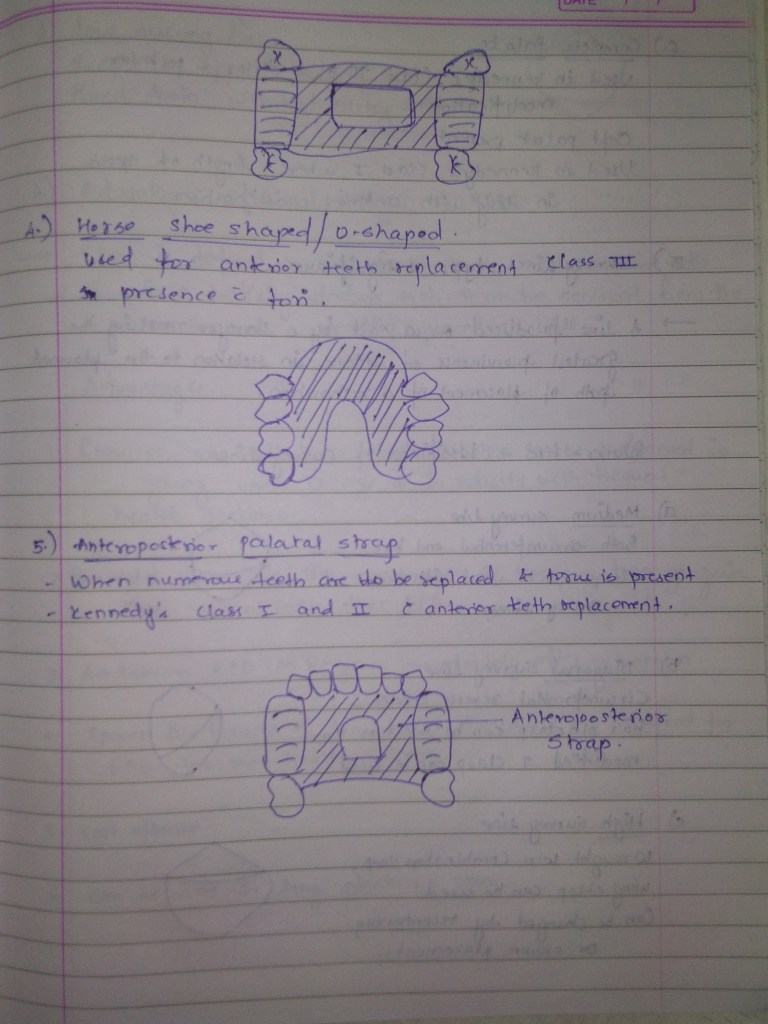 DATE / /
x x
x x
4.) Horse shoe shaped/U-shaped.
used for anterior teeth replacement class III
in presence c̄ tori.
5.) Anteroposterior palatal strap
- When numerous teeth are to be replaced & torus is present
- Kennedy's class I and II c̄ anterior teeth replacement.
Anteroposterior
Strap.